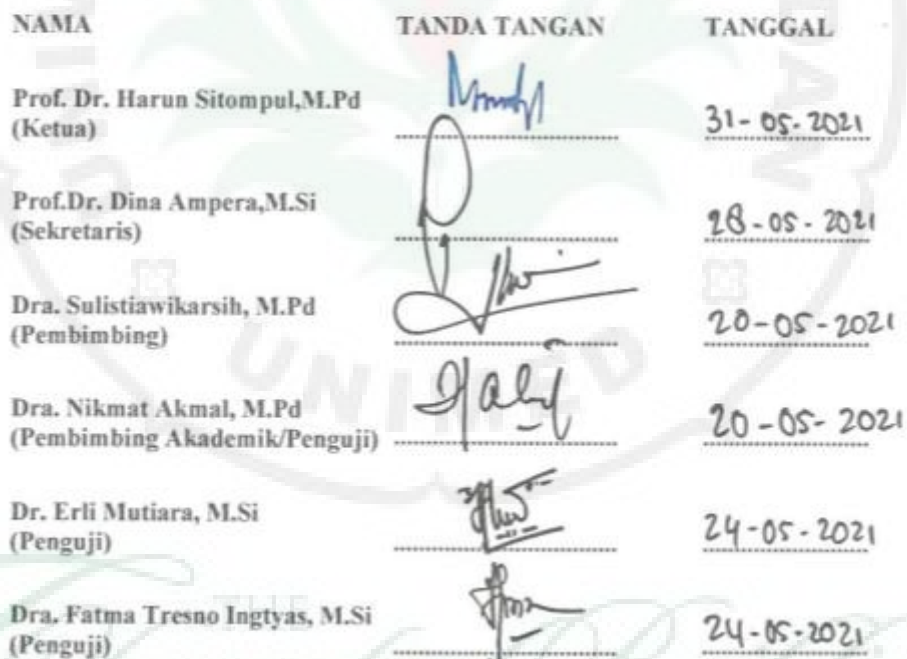 NAMA TANDA TANGAN TANGGAL
Prof. Dr. Harun Sitompul,M.Pd
(Ketua) 31-05-2021
Prof.Dr. Dina Ampera,M.Si
(Sekretaris) 28-05-2021
Dra. Sulistiawikarsih, M.Pd
(Pembimbing) 20-05-2021
UNIMED
Dra. Nikmat Akmal, M.Pd
(Pembimbing Akademik/Penguji) 20-05-2021
Dr. Erli Mutiara, M.Si
(Penguji) 24-05-2021
THE
Dra. Fatma Tresno Ingtyas, M.Si
(Penguji) 24-05-2021